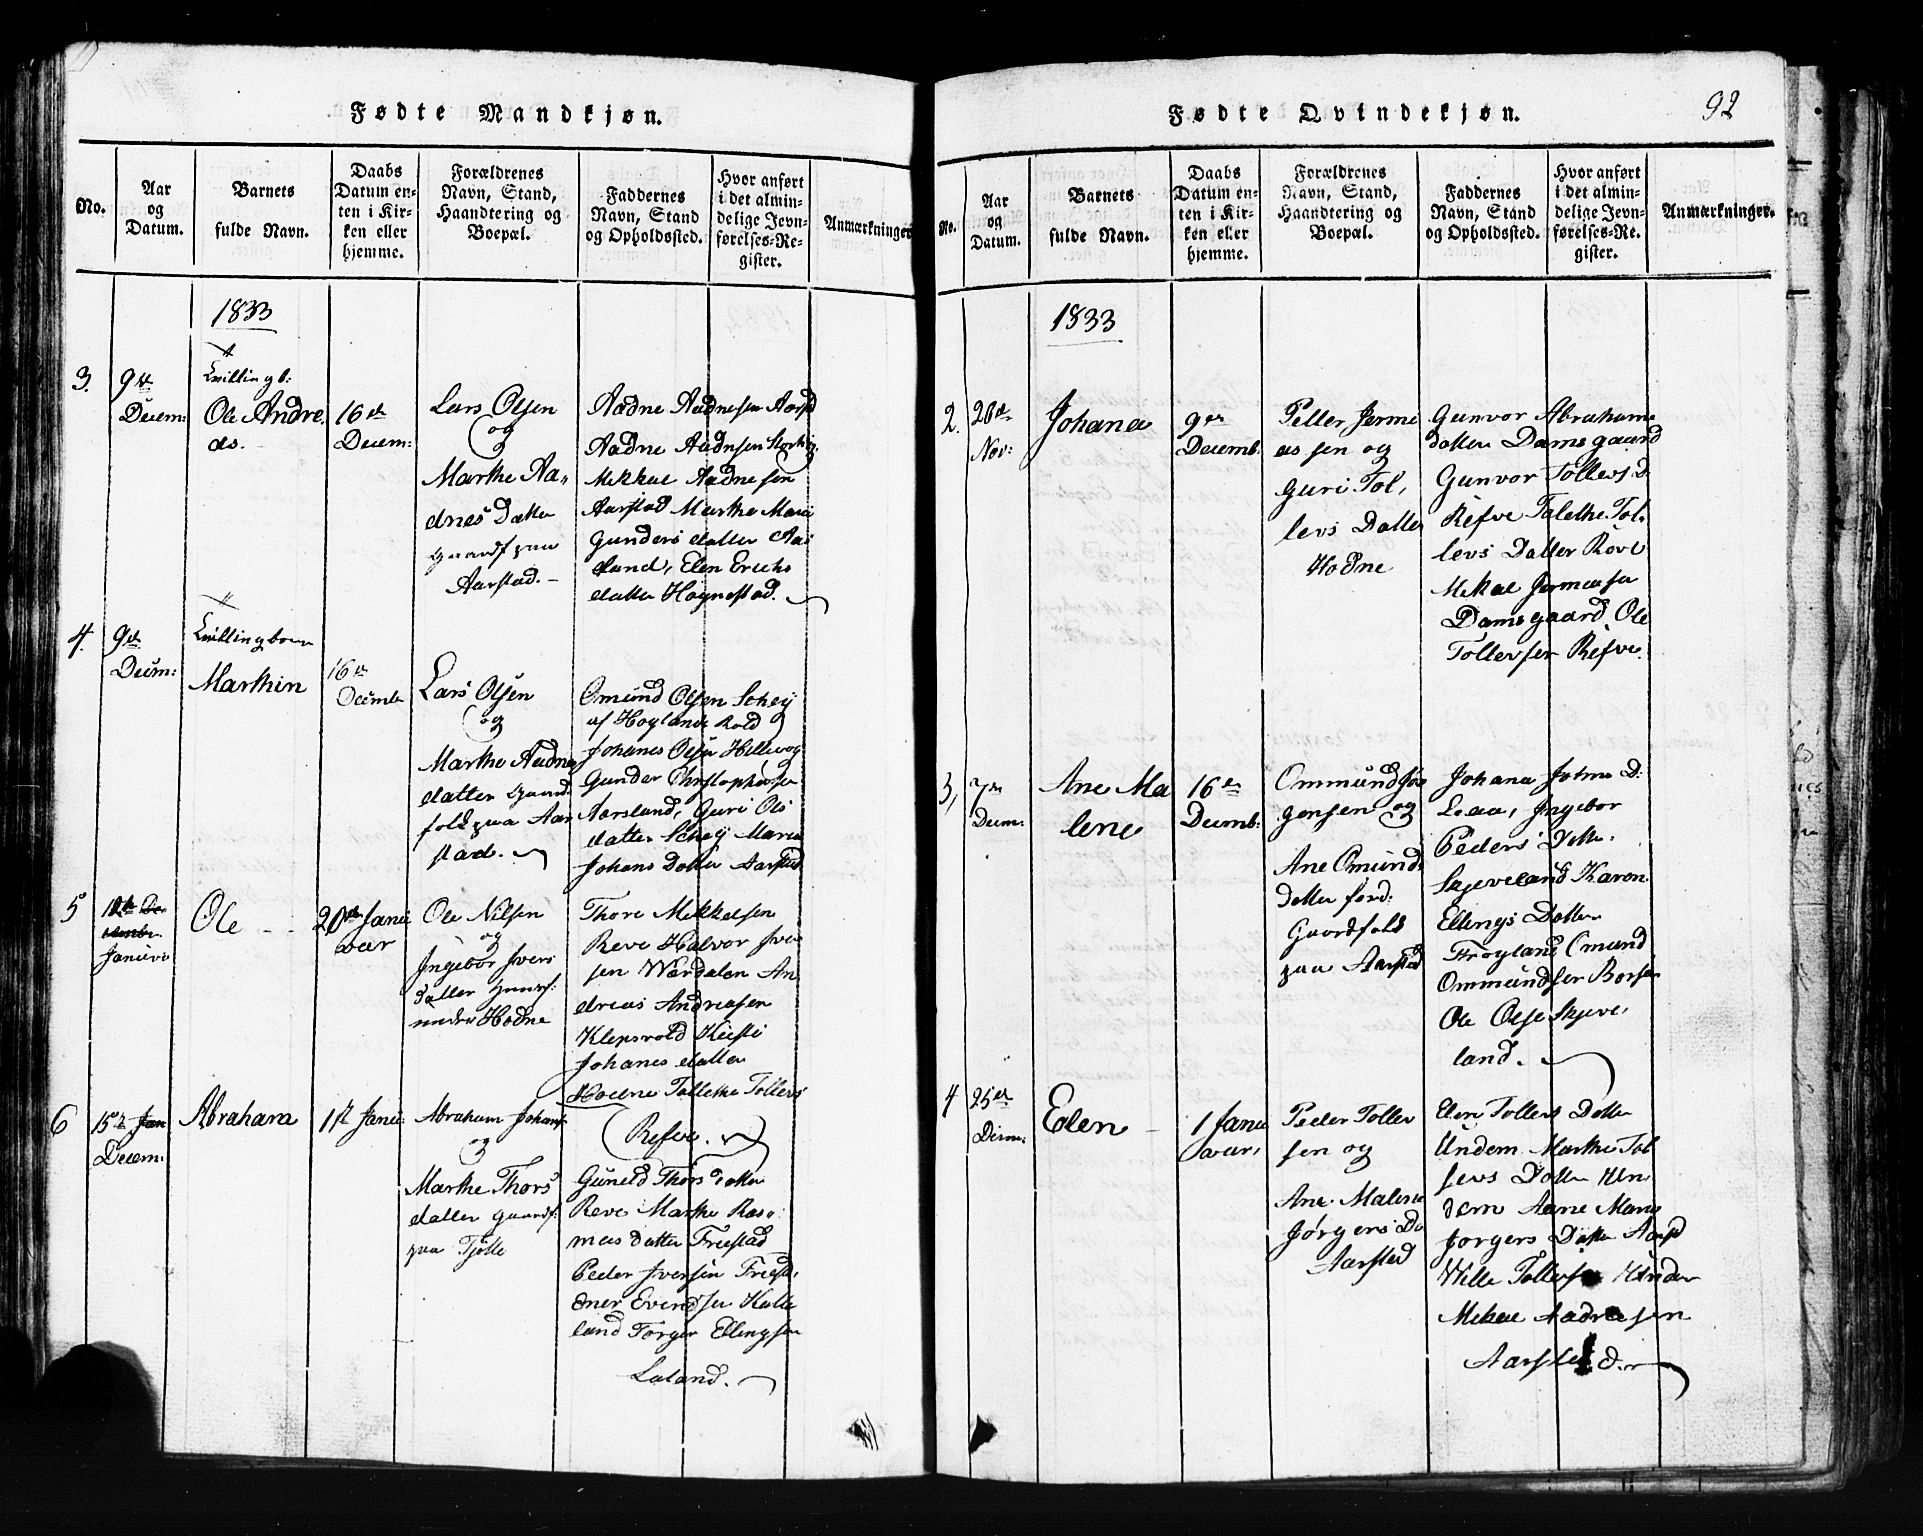 Fødte Mandkjøn.
No.
Aar
og
Datum.
Barnets
fulde Navn.
Daabs
Datum en-
ten i Kir-
ken eller
hjemme.
Forældrenes
Navn, Stand,
Haandtering og
Boepæl.
Faddernes
Navn, Stand
og Opholdssted.
Hvor anført
i det almin-
delige Jevn-
førelses-Re-
gister.
Anmærkninger
1833
3.
9de
Decem:
Tvilling b:
Ole Andre
as.
16de
Decem:
Lars Olsen
og
Marthe Aa„
dnes Datter
Gaardf paa
Aarstad. –
Aadne Aadnesen Aarsd
Aadne Aadnesen
Mekkel Aadnesen
Aarstad Marthe Mari
Gunders datter
land, Elen Erichs
datter Hognestad.
4.
9de
Decem:
Tvilling barn
Marthin
16de
Decemb
Lars Olsen
og
Marthe Aadne
datter Gaard
folk paa Aar
stad.
Omund Olsen Scheij
af Hoylands
Johanes Olsen Hellevog
Gunder Christophersen
Aarsland, Guri Ols
datter Scheij Maria
Johans Datter Aarstad
5
12te De
cembr.
Januar
Ole
20de Janu
war
Ole Nilsen
og
Ingebor Ivers
datter
under Hodne
Thore Mekkelsen
Reve Halvor Iver
sen Wardalen An
dreas Andreasen
Klepsvold
Johanes datter
Hodne Tallethe Tollevs
Refve.
6
15de Jan
Decem:
Abraham
1ste Janu:
Abraham Johans
og
Marthe Thors
datter Gaardf:
paa Tjøtte
Guneld Thors datter
Reve Marthe Ras
mus datter Friestad
Peder Iversen Friesd,
Evendsen
land Torger Ellingsen
Laland.
Fødte Qvindekjøn.
92
No.
Aar
og
Datum.
Barnets
fulde Navn.
Daabs
Datum en-
ten i Kir-
ken eller
hjemme.
Forældrenes
Navn, Stand,
Haandtering og
Boepæl.
Faddernes
Navn, Stand
og Opholdssted.
Hvor anført
i det almin-
delige Jevn-
førelses-Re-
gister.
Anmærkninger.
1833
2.
20de
Nov:
Johana
9de
Decemb.
Petter Jerme
as sen og
Guri Tol,
levs Datter
Hodne
Gunvor Abrahams
datter Damsgaard
Gunvor Tollevs d
Refve Talethe Tol.
levs Datter Reve
Mekal
Damsgaard Ole
Tollevsen Refve.
3,
7de
Decem:
Ane Ma
lene
16de
Decemb:
Ommund Jør
gensen og
Ane Omund
datter
Gaardfolk
paa Aarstad
Johana D:
Leaa, Ingebor
Peders Datter
Skjeveland Karen
Ellings Datter
Frøyland Omund
Ommundsen
Ole Olse Skjeve,
land.
4
25de
Decm:
Eelen
1 Janu
war,
Peder Tollev
sen og
Ane Malene
Jørgens D
Aarsted
Elen Tollevs Datter
Undem Marthe Tol
levs Datter Un
dem Aane Marie
Jorgens Datter Aarsd
Wille Tollefsen Under
Mekal Aadnesen
Aarsted.